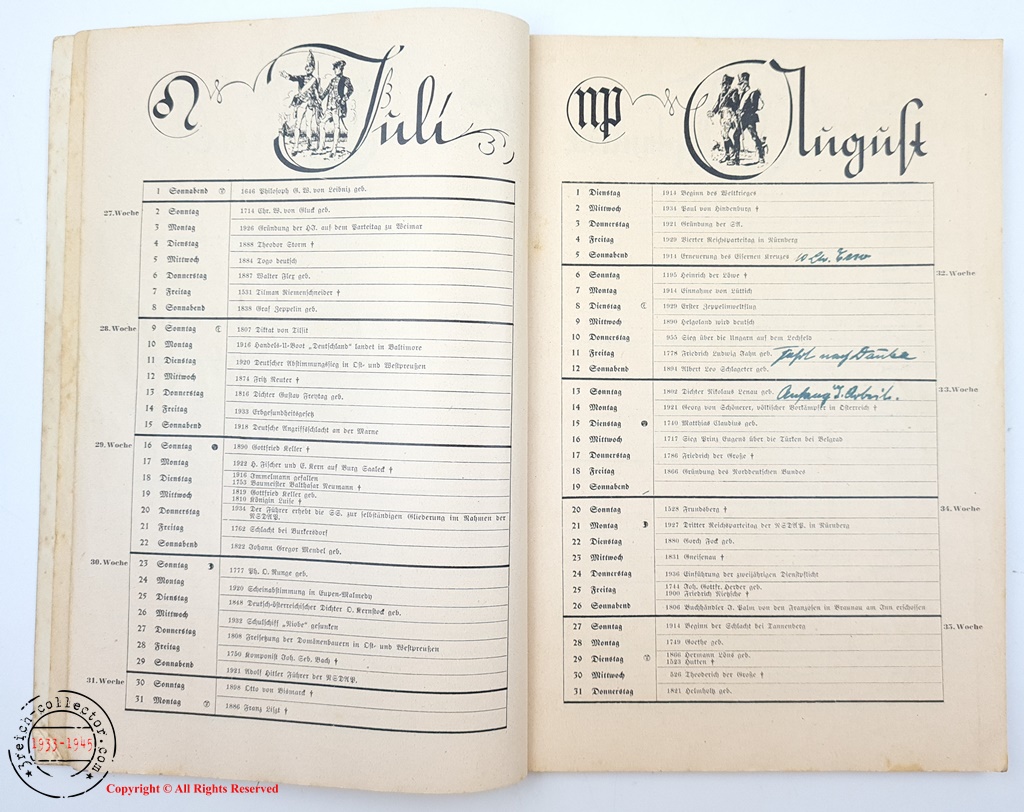 Juli
1 Sonnabend 1646 Philosoph G. W. von Leibniz geb.
27. Woche
2 Sonntag 1714 Chr. W. von Gluck geb.
3 Montag 1926 Gründung der HJ. auf dem Parteitag zu Weimar
4 Dienstag 1888 Theodor Storm †
5 Mittwoch 1884 Togo deutsch
6 Donnerstag 1887 Walter Flex geb.
7 Freitag 1531 Tilman Riemenschneider †
8 Sonnabend 1838 Graf Zeppelin geb.
28. Woche
9 Sonntag 1807 Diktat von Tilsit
10 Montag 1916 Handels-U-Boot „Deutschland" landet in Baltimore
11 Dienstag 1920 Deutscher Abstimmungssieg in Ost- und Westpreußen
12 Mittwoch 1874 Fritz Reuter †
13 Donnerstag 1816 Dichter Gustav Freytag geb.
14 Freitag 1933 Erbgesundheitsgesetz
15 Sonnabend 1918 Deutsche Angriffsschlacht an der Marne
29. Woche
16 Sonntag 1890 Gottfried Keller †
17 Montag 1922 H. Fischer und E. Kern auf Burg Saaleck †
18 Dienstag 1916 Immelmann gefallen
1753 Baumeister Balthasar Neumann †
19 Mittwoch 1819 Gottfried Keller geb.
1810 Königin Luise †
20 Donnerstag 1934 Der Führer erhebt die SS. zur selbständigen Gliederung im Rahmen der
NSDAP.
21 Freitag 1762 Schlacht bei Burkersdorf
22 Sonnabend 1822 Johann Gregor Mendel geb.
30. Woche
23 Sonntag 1777 Ph. O. Runge geb.
24 Montag 1920 Scheinabstimmung in Eupen-Malmedy
25 Dienstag 1848 Deutsch-österreichischer Dichter O. Kernstock geb.
26 Mittwoch 1932 Schulschiff „Niobe" gesunken
27 Donnerstag 1808 Freisetzung der Domänenbauern in Ost- und Westpreußen
28 Freitag 1750 Komponist Joh. Seb. Bach †
29 Sonnabend 1921 Adolf Hitler Führer der NSDAP.
31. Woche
30 Sonntag 1898 Otto von Bismarck †
31 Montag 1886 Franz Liszt †
August
1 Dienstag 1914 Beginn des Weltkrieges
2 Mittwoch 1934 Paul von Hindenburg †
3 Donnerstag 1921 Gründung der SA.
4 Freitag 1929 Vierter Reichsparteitag in Nürnberg
5 Sonnabend 1914 Erneuerung des Eisernen Kreuzes
32. Woche
6 Sonntag 1195 Heinrich der Löwe †
7 Montag 1914 Einnahme von Lüttich
8 Dienstag 1929 Erster Zeppelinweltflug
9 Mittwoch 1890 Helgoland wird deutsch
10 Donnerstag 955 Sieg über die Ungarn auf dem Lechfeld
11 Freitag 1778 Friedrich Ludwig Jahn geb. nach
12 Sonnabend 1894 Albert Leo Schlageter geb.
33. Woche
13 Sonntag 1802 Dichter Nikolaus Lenau geb. Anfang
14 Montag 1921 Georg von Schönerer, völkischer Vorkämpfer in Österreich †
15 Dienstag 1740 Matthias Claudius geb.
16 Mittwoch 1717 Sieg Prinz Eugens über die Türken bei Belgrad
17 Donnerstag 1786 Friedrich der Große †
18 Freitag 1866 Gründung des Norddeutschen Bundes
19 Sonnabend
34. Woche
20 Sonntag 1528 Frundsberg †
21 Montag 1927 Dritter Reichsparteitag der NSDAP. in Nürnberg
22 Dienstag 1880 Gorch Fock geb.
23 Mittwoch 1831 Gneisenau †
24 Donnerstag 1936 Einführung der zweijährigen Dienstpflicht
25 Freitag 1744 Joh. Gottfr. Herder geb.
1900 Friedrich Nietzsche †
26 Sonnabend 1806 Buchhändler J. Palm von den Franzosen in Braunau am Inn erschossen
35. Woche
27 Sonntag 1914 Beginn der Schlacht bei Tannenberg
28 Montag 1749 Goethe geb.
29 Dienstag 1866 Hermann Löns geb.
1523 Hutten †
30 Mittwoch 526 Theoderich der Große †
31 Donnerstag 1821 Helmholtz geb.
3reich-collector.com
1933-1945
Copyright © All Rights Reserved